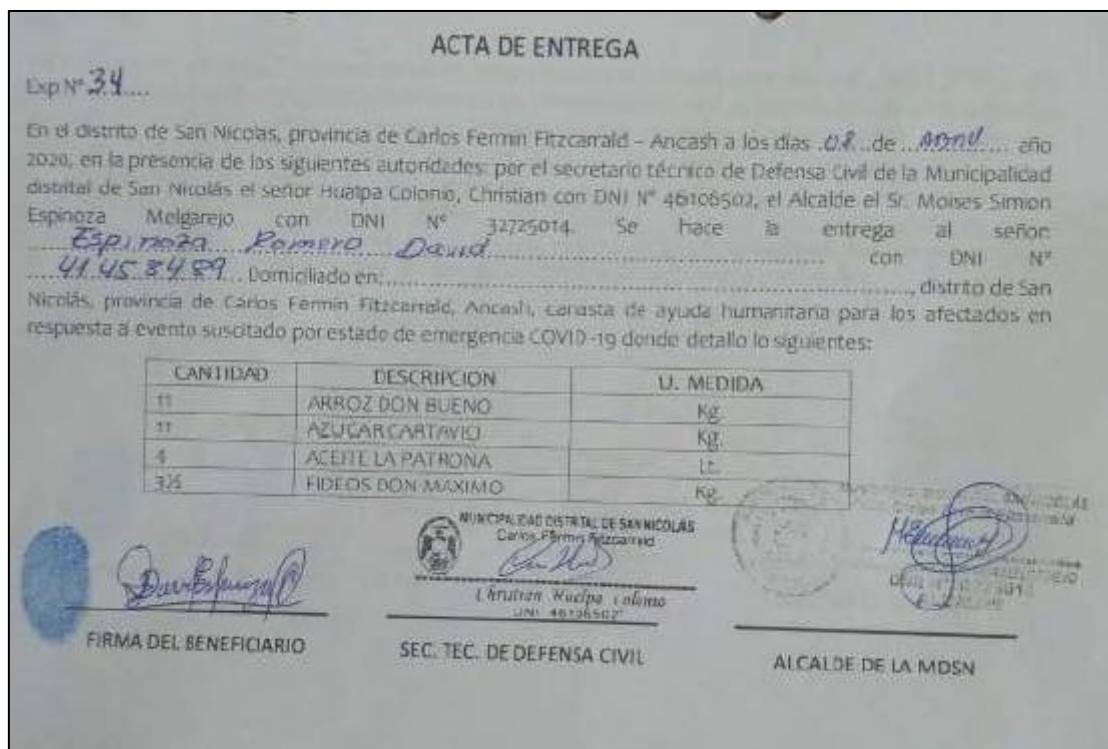 ACTA DE ENTREGA
Exp N° 34....
En el distrito de San Nicolas, provincia de Carlos Fermin Fitzcarrald – Ancash a los días 08 de Abril año
2020, en la presencia de los siguientes autoridades: por el secretario técnico de Defensa Civil de la Municipalidad
distrital de San Nicolás el señor Hualpa Colonio, Christian con DNI N° 46106502, el Alcalde el Sr. Moises Simion
Espinoza Melgarejo con DNI N° 32725014. Se hace la entrega al señor:
Espinoza Romero David con DNI N°
41458489 Domiciliado en: , distrito de San
Nicolás, provincia de Carlos Fermin Fitzcarrald, Ancash, canasta de ayuda humanitaria para los afectados en
respuesta a evento suscitado por estado de emergencia COVID-19 donde detallo lo siguientes:
CANTIDAD DESCRIPCION U. MEDIDA
11 ARROZ DON BUENO Kg.
11 AZUCAR CARTAVIO Kg.
4 ACEITE LA PATRONA Lt.
325 FIDEOS DON MAXIMO Kg.
MUNICIPALIDAD DISTRITAL DE SAN NICOLAS
Carlos Fermin Fitzcarrald
Christian Hualpa Colonio
DNI 46106502
FIRMA DEL BENEFICIARIO
SEC. TEC. DE DEFENSA CIVIL
ALCALDE DE LA MDSN